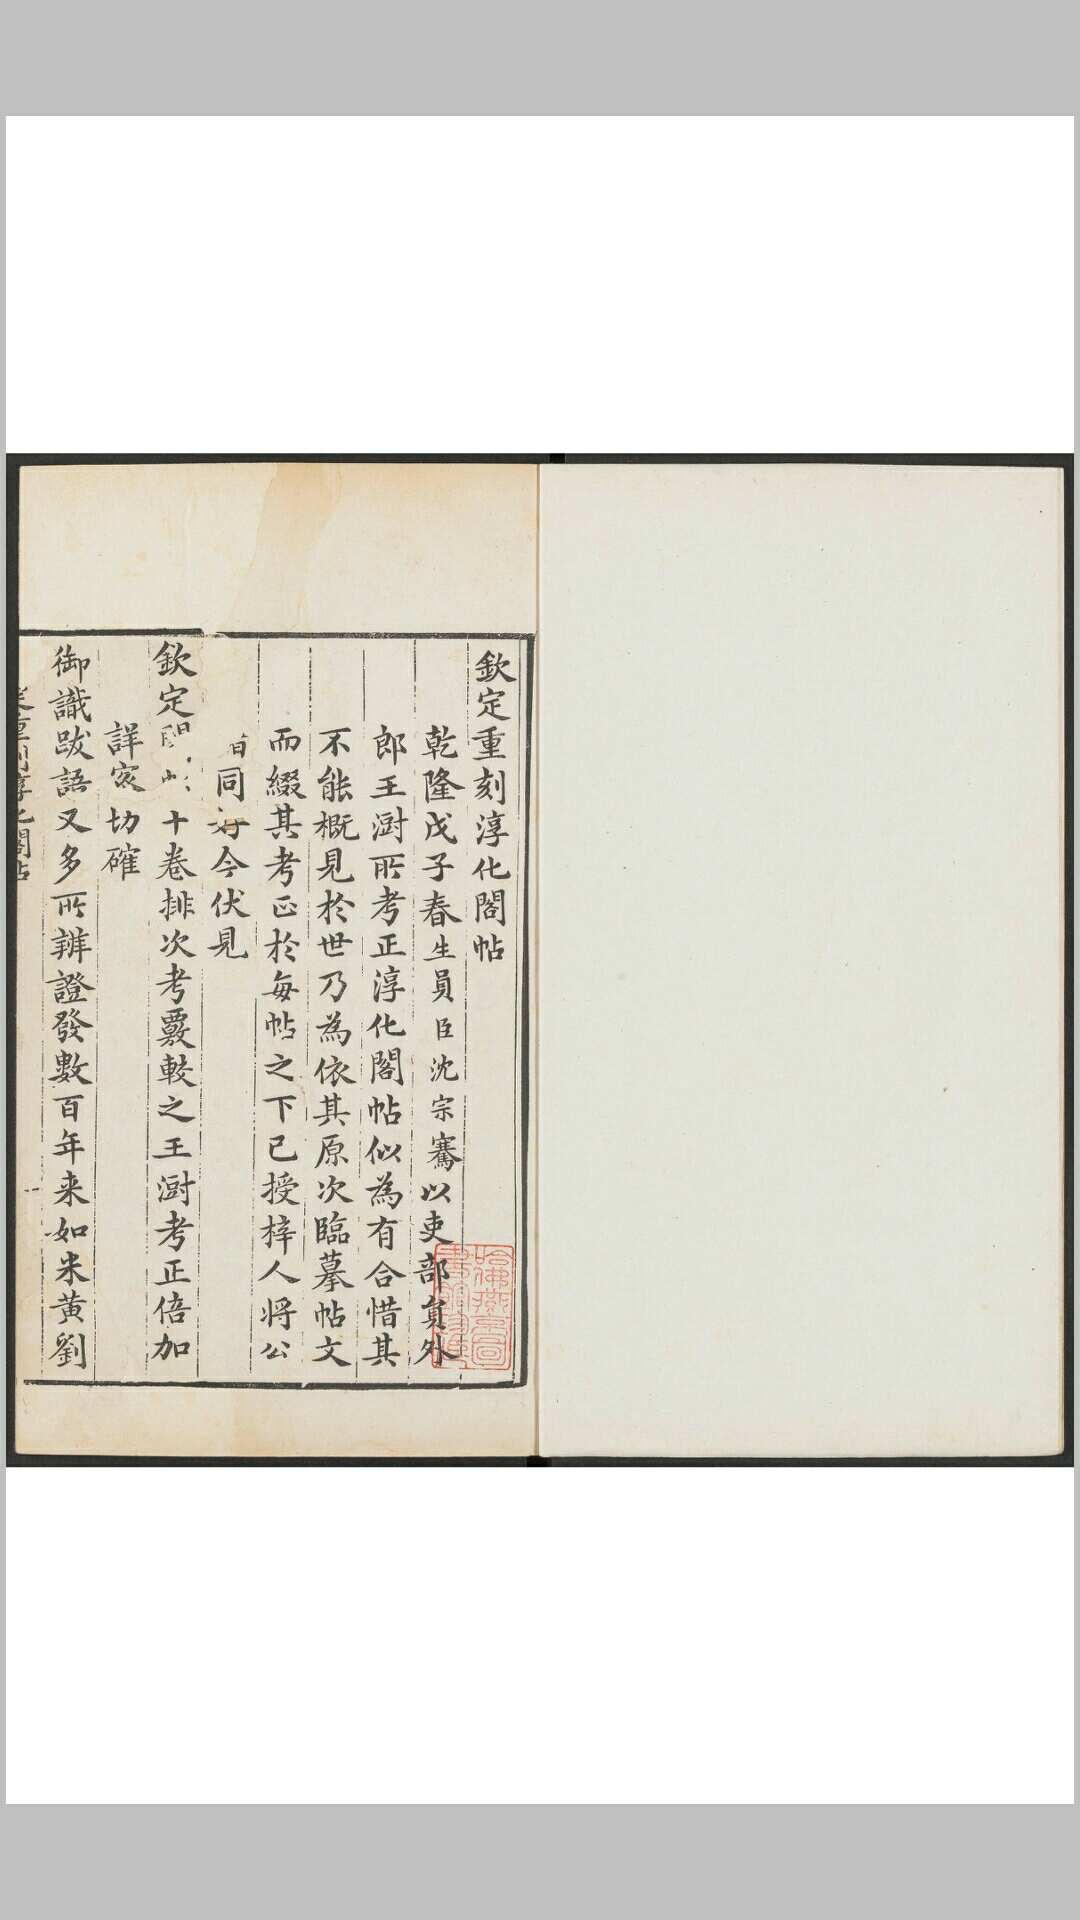 欽定重刻淳化閣帖
乾隆戊子春生員臣沈宗騫以吏部員外
郎王澍所考正淳化閣帖似為有合惜其
不能概見於世乃為依其原次臨摹帖文
而綴其考正於每帖之下已授梓人將公
同好今伏見
欽定閣帖十卷排次考覈較之王澍考正倍加
詳密切確
御識跋語又多所辨證發數百年来如米黃劉
哈佛燕京圖
書館珍藏